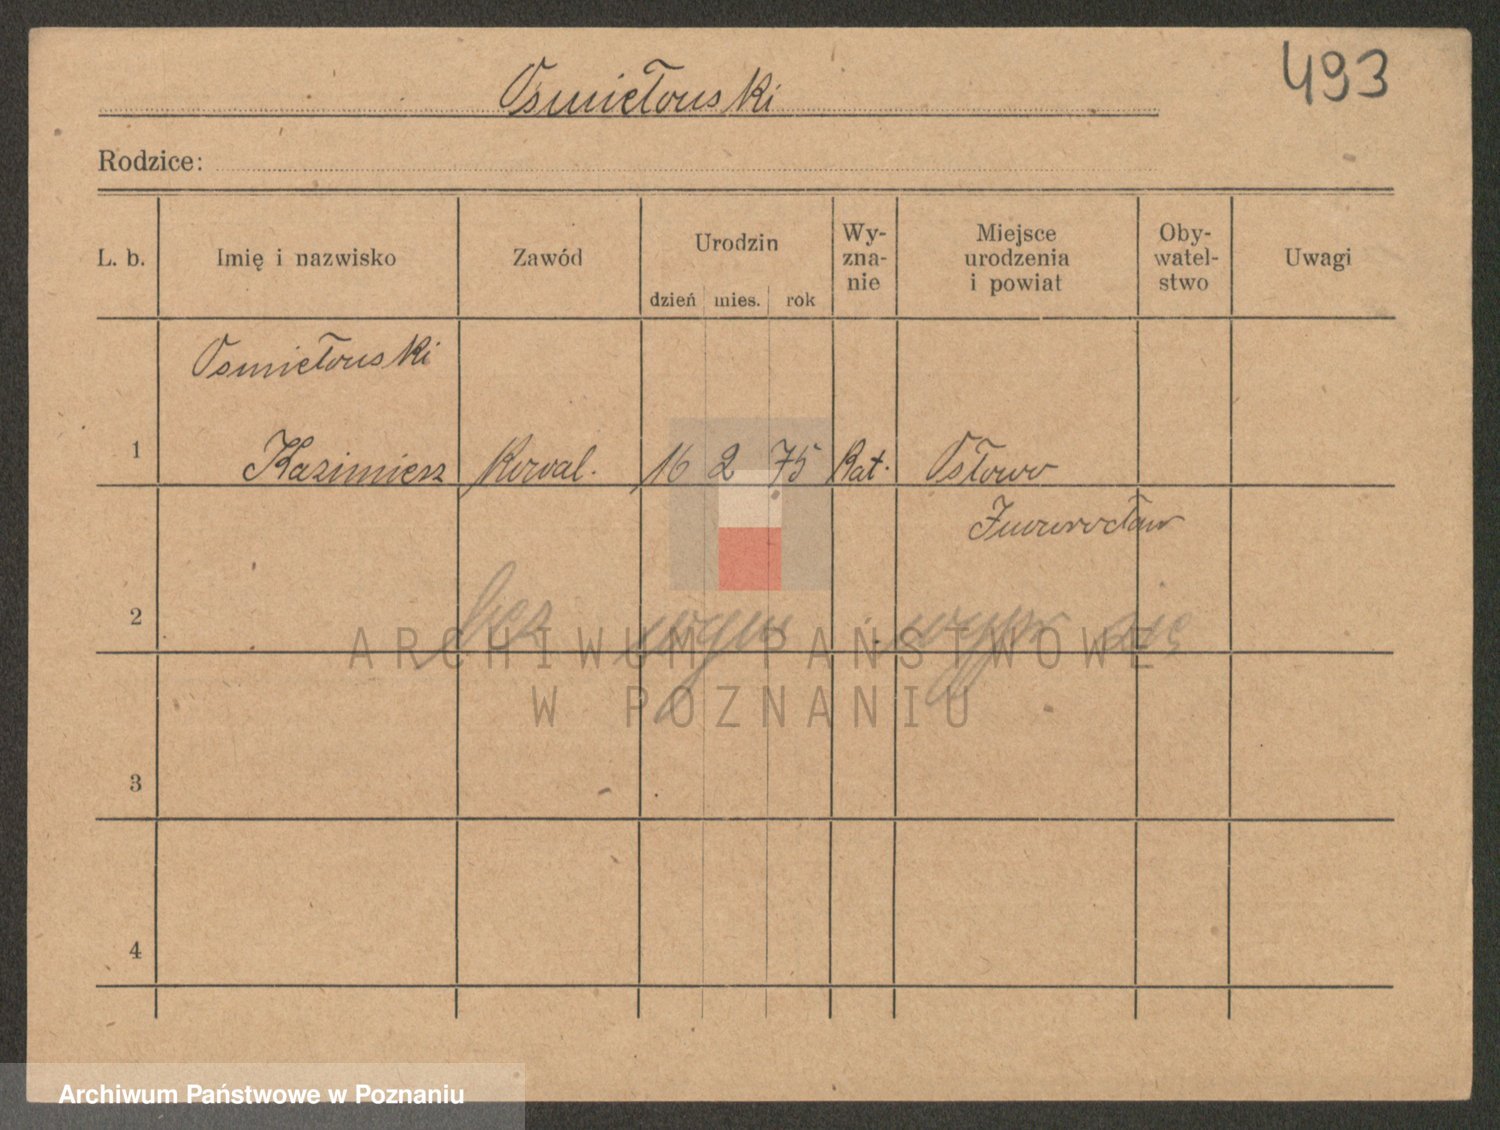 493
Osmiełowski
Rodzice:
L. b. Imię i nazwisko Zawód Urodzin dzień mies. rok Wy-zna-nie Miejsce urodzenia i powiat Oby-watel-stwo Uwagi
Osmiełowski
1 Kazimierz Kowal. 16 2 75 Kat. Osłowo
Inowrocław
2 bez
ARCHIWUM PAŃSTWOWE
W POZNANIU
3
4
Archiwum Państwowe w Poznaniu